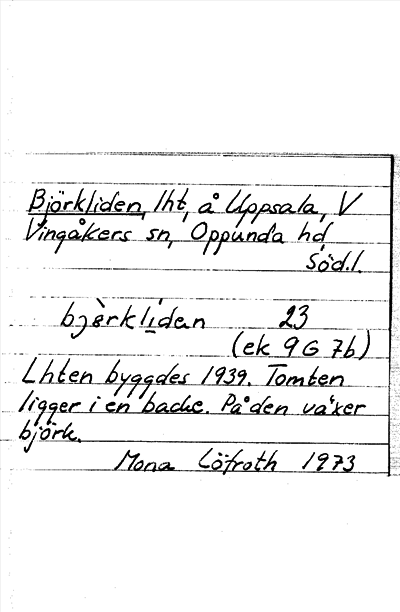 Björkliden, lht, å Uppsala, V
Vingåkers sn, Oppunda hd,
Södl.
bjə̀rklídan 23
(ek 9G 7b)
Lhten byggdes 1939. Tomten
ligger i en backe. På den växer
björk.
Mona Löfroth 1973